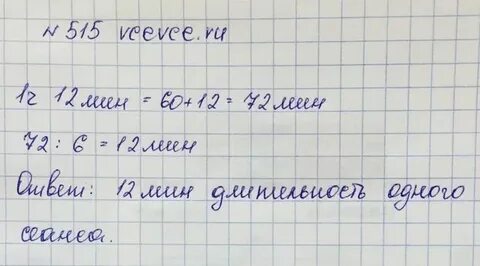 № 515 vcevce.ru
1ч 12 мин = 60+12 = 72 мин
72 : 6 = 12 мин
Ответ: 12 мин длительность одного
сеанса.